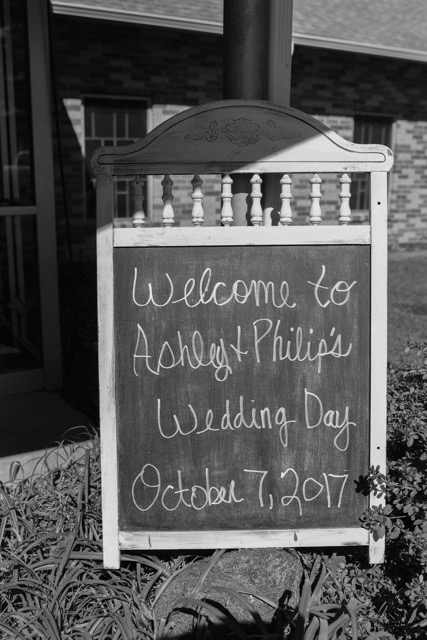 Welcome to
Ashley + Philip's
Wedding Day
October 7, 2017